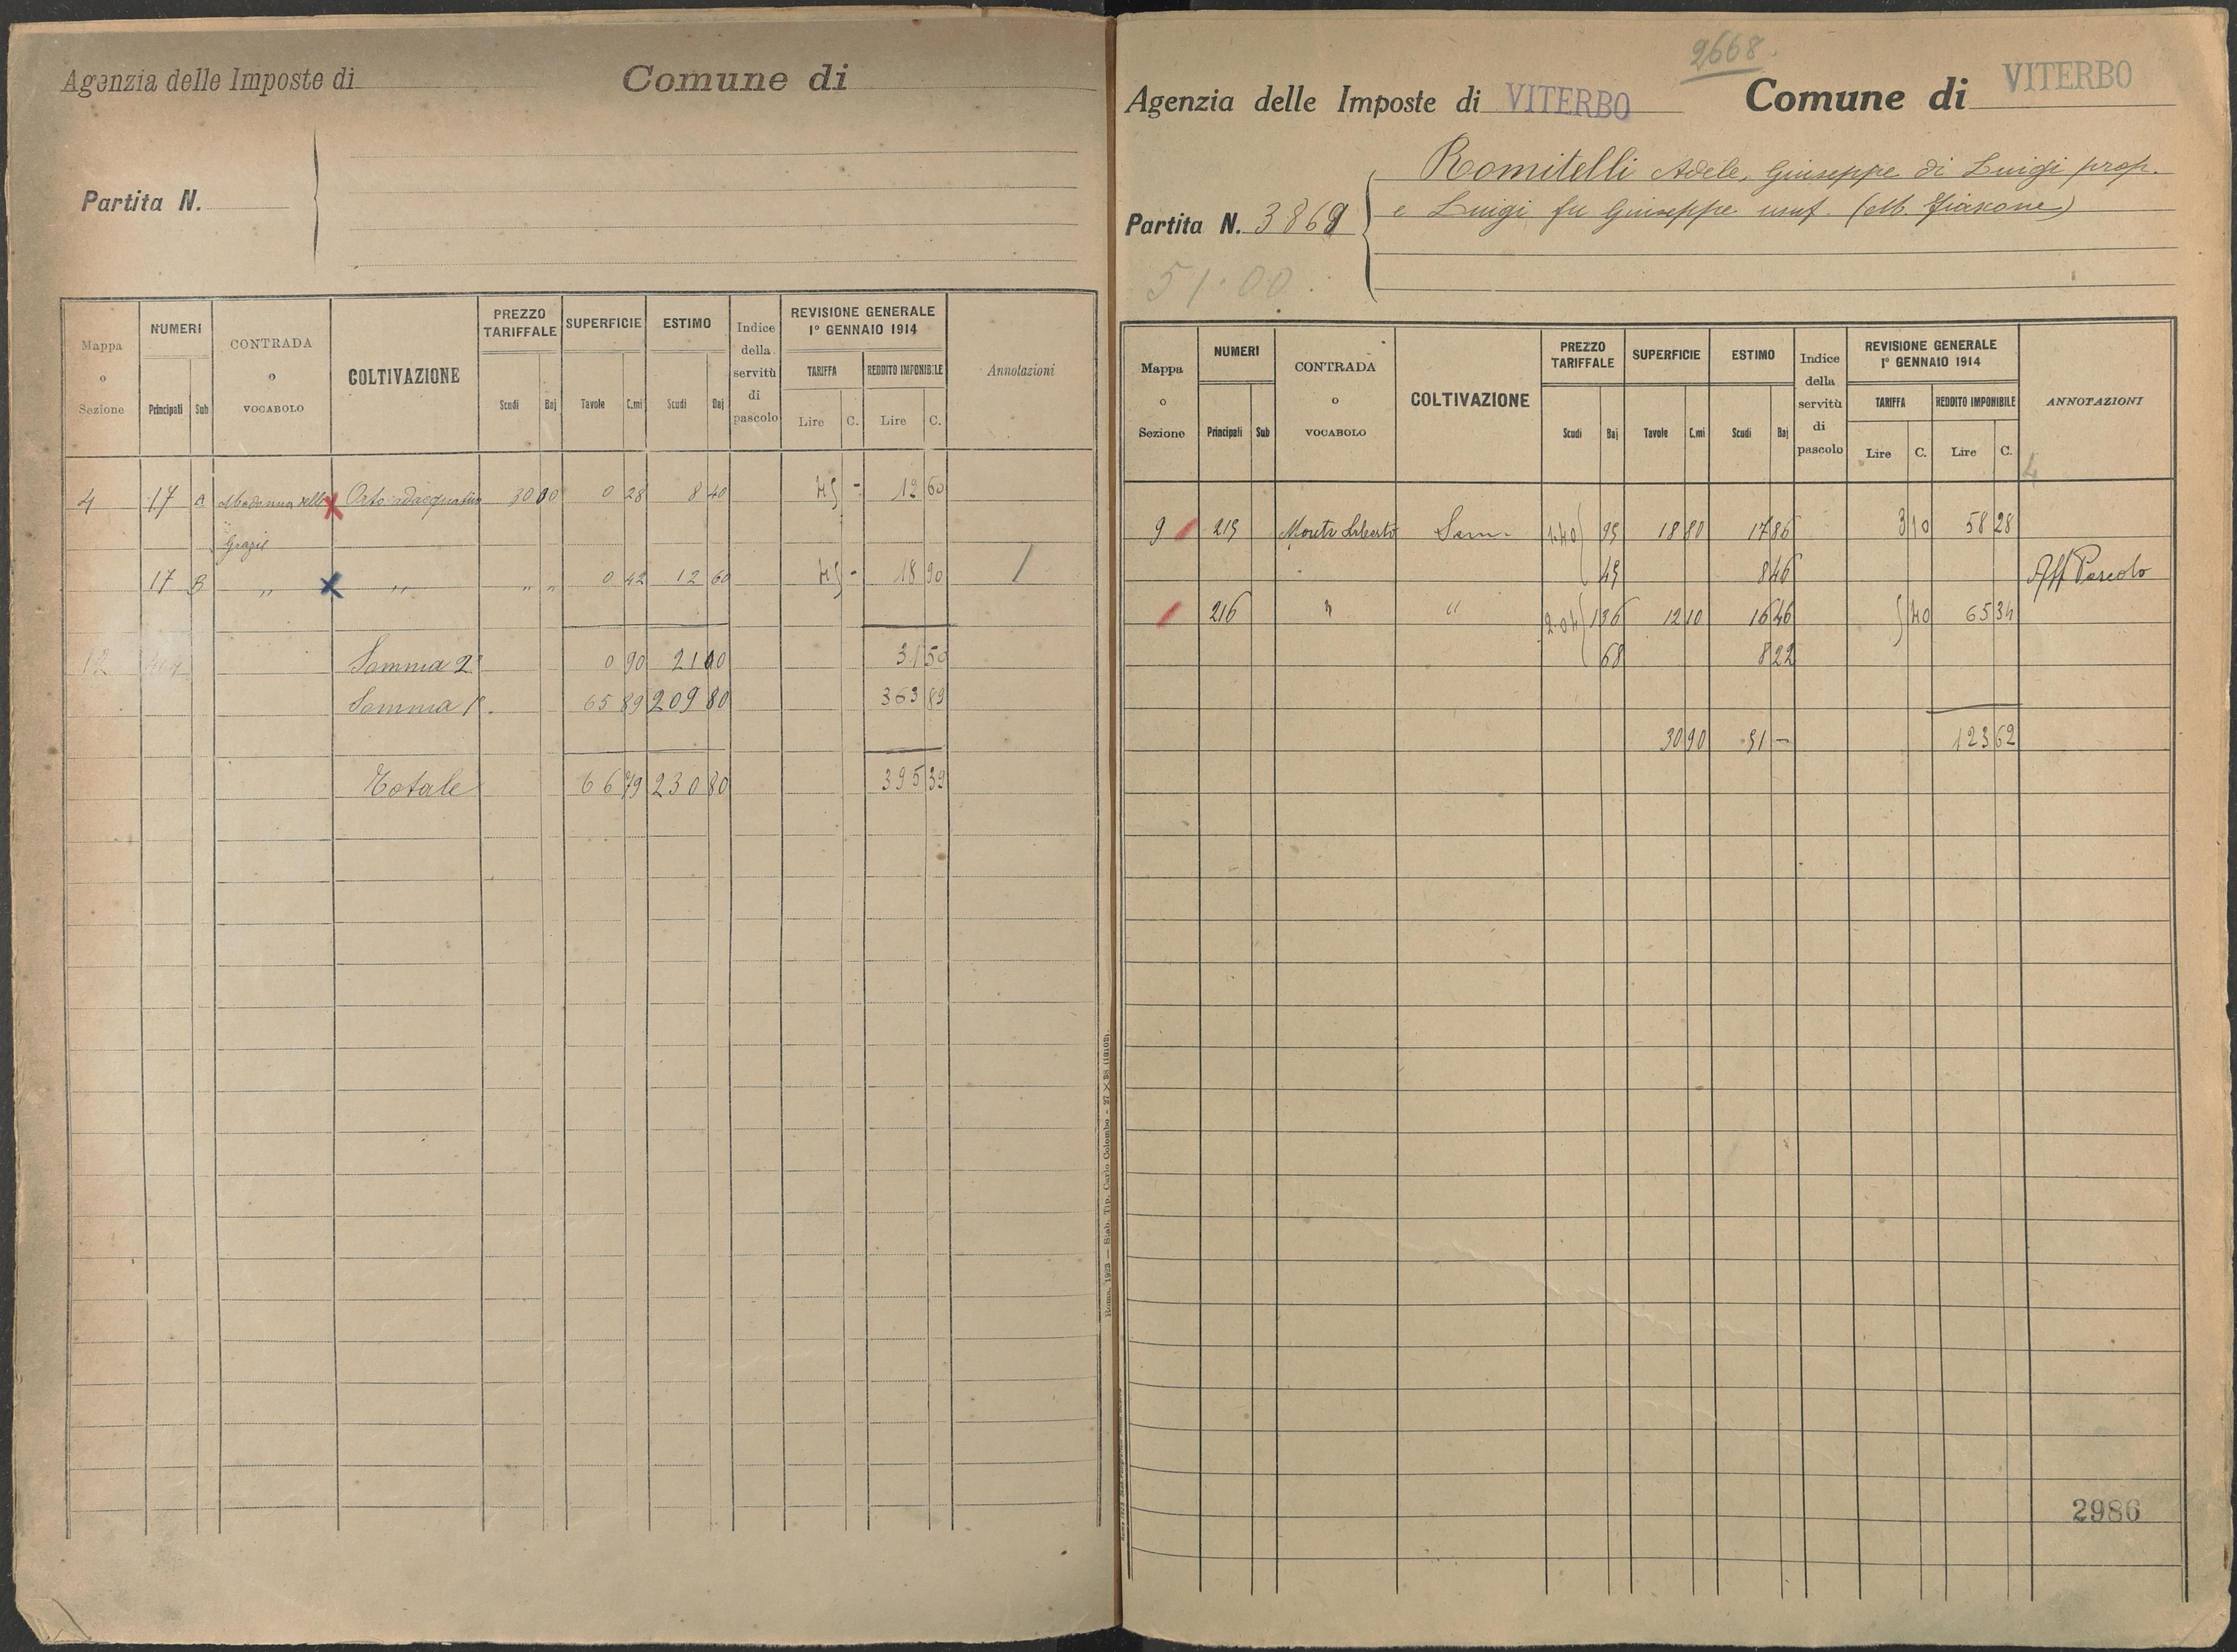 Agenzia delle Imposte di Comune di
Partita N.
Mappa o Sezione NUMERI Principali Sub CONTRADA o VOCABOLO COLTIVAZIONE PREZZO TARIFFALE Scudi Baj SUPERFICIE Tavole C.mi ESTIMO Scudi Baj Indice della servitù di pascolo REVISIONE GENERALE 1° GENNAIO 1914 TARIFFA Lire C. REDDITO IMPONIBILE Lire C. Annotazioni
4 17 a Madonna delle Orto adacquativo 30 00 0 28 8 40 45 - 12 60
Grazie
17 B " " " " 0 42 12 60 45 - 18 90
Somma 2ª 0 90 21 00 31 50
Somma 1ª 65 89 209 80 363 89
Totale 66 79 230 80 395 39
Roma, 1923 — Stab. Tip. Carlo Colombo
2668.
Agenzia delle Imposte di VITERBO Comune di VITERBO
Romitelli Adele, Giuseppe di Luigi prop.
e Luigi fu Giuseppe usuf.
Partita N. 3869
51.00
Mappa o Sezione NUMERI Principali Sub CONTRADA o VOCABOLO COLTIVAZIONE PREZZO TARIFFALE Scudi Baj SUPERFICIE Tavole C.mi ESTIMO Scudi Baj Indice della servitù di pascolo REVISIONE GENERALE 1° GENNAIO 1914 TARIFFA Lire C. REDDITO IMPONIBILE Lire C. ANNOTAZIONI
9 215 Monte Liberto Sem. 1.40 95 18 80 17 86 3 10 58 28
45 8 46 Aff Pascolo
216 " " 2.04 1 36 12 10 16 46 5 40 65 34
68 8 22
30 90 51 - 123 62
2986